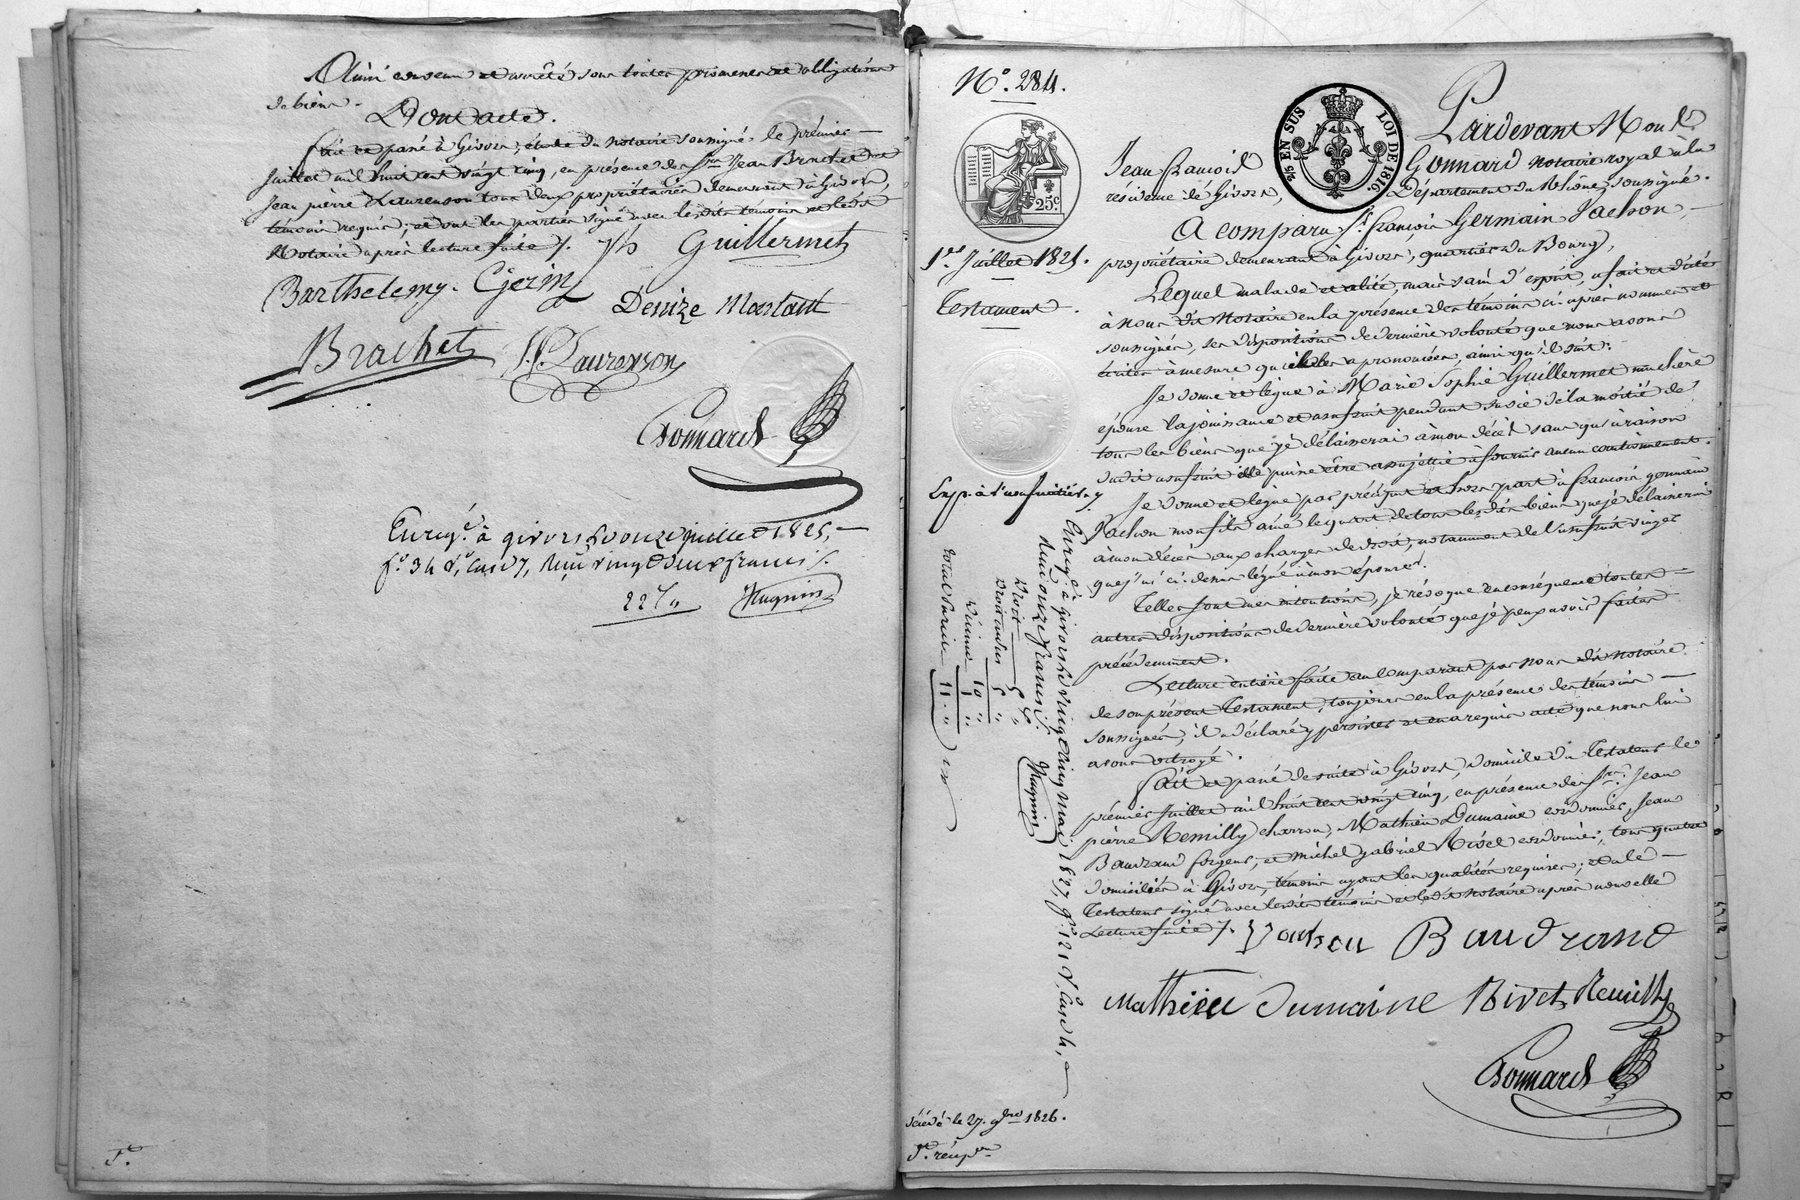 Ainsi convenu et arrêté sous toutes promesses et obligations
de biens.
Dont acte.
Fait et passé à Givors, étude du notaire soussigné le premier
juillet mil huit cent vingt cinq, en présence de Srs Jean Brachet et
Jean pierre Laurenson tous deux propriétaires demeurant à Givors,
témoins requis; et ont les parties signé avec lesdits témoins et ledit
Notaire après lecture faite ./.
Guillermet
Barthelemy
Denize Mastaut
Brachet
J. P. Laurenson
Gonnard
Enregé. à givors le onze juillet 1825,
fo. 34 Vo, Case 7, Reçu vingt deux francs
22 f
Huguin
Ste.
No. 284.
25 EN SUS LOI DE 1816.
25c
Pardevant Nous
Jean francois Gonnard notaire royal à la
résidence de Givors, Département du Rhône, soussigné.
1er. Juillet 1825.
A comparu Sr. françois Germain Vachon,
propriétaire demeurant à Givors, quartier du Bourg,
Testament.
Lequel malade et alité, mais sain d'esprit, a fait et dicté
à nous dit Notaire en la présence des témoins ci-après nommés et
soussignés, ses dispositions de dernière volonté que nous avons
écrites à mesure qu'il les a prononcées, ainsi qu'il suit:
Je donne et lègue à Marie Sophie Guillermet ma chère
épouse la jouissance et usufruit pendant sa vie de la moitié de
tous les biens que je délaisserai à mon décès sans qu'à raison
dudit usufruit elle puisse être assujettie à fournir aucun cautionnement.
Exp. à l'usufruitière
Je donne et lègue par préciput et hors part à francois germain
Vachon mon fils ainé le quart de tous lesdits biens que je délaisserai
à mon décès aux charges de droit, notamment de l'usufruit viager
que j'ai ci-dessus légué à mon épouse.
Telles sont mes intentions, je révoque en conséquence toutes
autres dispositions de dernière volonté que je peux avoir faites
précédemment.
Lecture entière faite au comparant par nous dit Notaire
de son présent Testament, toujours en la présence des témoins
soussignés, il a déclaré y persister et en a requis acte que nous lui
avons octroyé.
Fait et passé de suite à Givors, domicile du Testateur le
premier Juillet mil huit cent vingt cinq, en présence de Srs. Jean
pierre Remilly charron, Mathieu Dumaine cordonnier, Jean
Baudrand forgeur, et michel gabriel Rivet cordonnier, tous quatre
domiciliés à Givors, témoins ayant les qualités requises; et a le
Testateur signé avec lesdits témoins et ledit Notaire après nouvelle
Lecture faite ./.
Vachon
Baudrand
Mathieu Dumaine
Rivet
Remilly
Gonnard
Enregé. à givors le vingt cinq mai 1827, fo. 121 Vo. Case 4,
Reçu onze francs
Huguin
Droit 5 "
5 "
10 "
Décime 1 "
11 "
Décédé le 27. 9bre 1826.